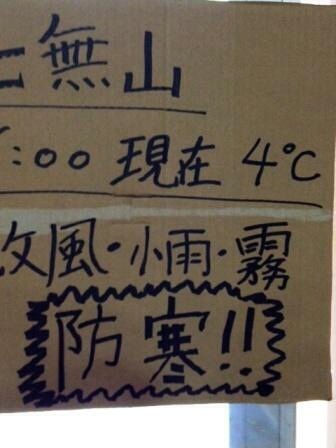 無山
:00 現在 4℃
風・小雨・霧
防寒!!